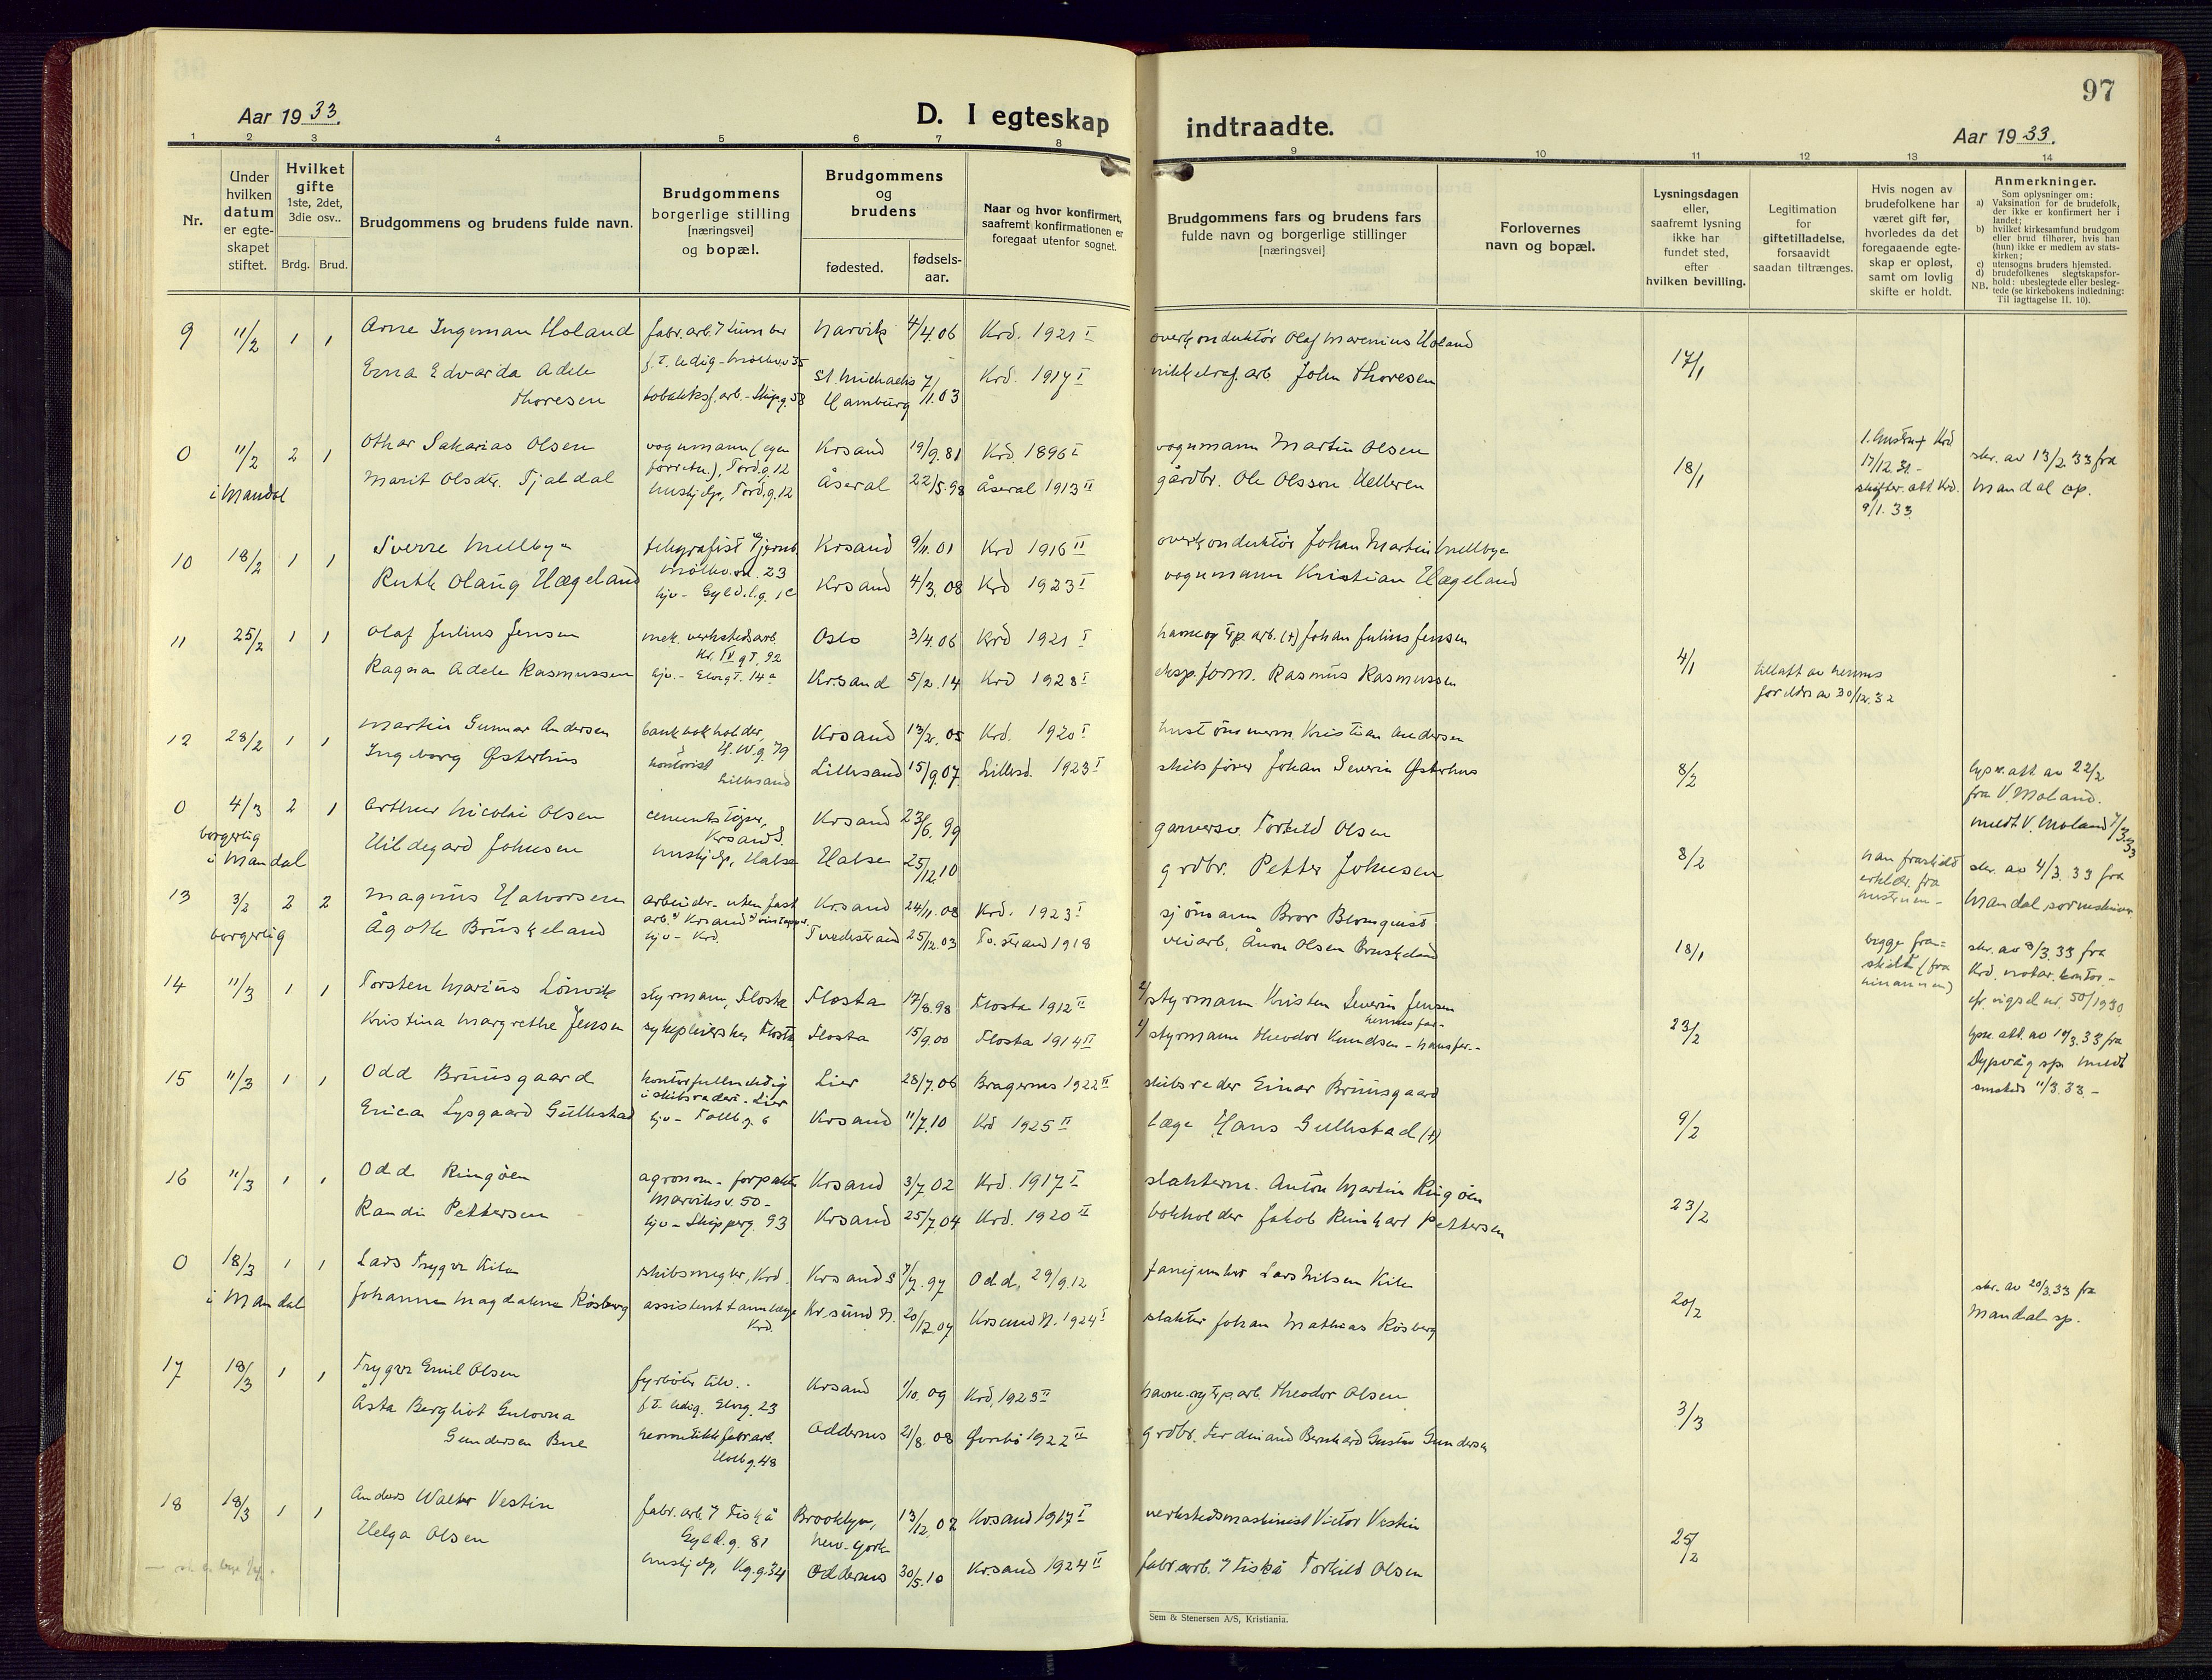 97
Aar 1933.
D. I egteskap indtraadte.
Aar 1933.
1 2 3 4 5 6 7 8 9 10 11 12 13 14
Nr.
Under hvilken datum er egteskapet stiftet.
Hvilket gifte 1ste, 2det, 3die osv..
Brdg. Brud.
Brudgommens og brudens fulde navn.
Brudgommens borgerlige stilling [næringsvei] og bopæl.
Brudgommens og brudens
fødested. fødsels-aar.
Naar og hvor konfirmert, saafremt konfirmationen er foregaat utenfor sognet.
Brudgommens fars og brudens fars fulde navn og borgerlige stillinger [næringsvei]
Forlovernes navn og bopæl.
Lysningsdagen eller, saafremt lysning ikke har fundet sted, efter hvilken bevilling.
Legitimation for giftetilladelse, forsaavidt saadan tiltrænges.
Hvis nogen av brudefolkene har været gift før, hvorledes da det foregaaende egteskap er opløst, samt om lovlig skifte er holdt.
Anmerkninger.
Som oplysninger om:
a) Vaksination for de brudefolk, der ikke er konfirmert her i landet;
b) hvilket kirkesamfund brudgom eller brud tilhører, hvis han (hun) ikke er medlem av statskirken;
c) utensogns bruders hjemsted.
d) brudefolkenes slegtskapsforhold: ubeslegtede eller beslegtede (se kirkebokens indledning:
NB. Til iagttagelse II. 10).
9 11/2 1 1 Arne Ingeman Holand Narvik 4/4.06 Krd. 1921 I overkonduktör Olaf Marenius Holand 17/1
Erna Edvarda Adele Thoresen tobakksf.arb. - Skipg. 53 St. Michaelis Hamburg 7/1.03 Krd. 1917 I arb. John Thoresen
0 11/2 2 1 Othar Sakarias Olsen vognmann (egen forretn.), Tord.g. 12 Krsand 19/9.81 Krd. 1896 I vognmann Martin Olsen 18/1
i Mandal Marit Olsdtr. Tjaldal hushjelp, Tord.g. 12 Åseral 22/5.98 Åseral 1913 II gårdbr. Ole Olsson Helleren
1. hustru + Krd 17/12.31 - skifter.att Krd. 9/1.33
skr. av 13/2.33 fra Mandal sp.
10 18/2 1 1 Sverre Mellbye telegrafist Krsand 9/11.01 Krd 1916 II overkonduktör Johan Martin Mellbye
Ruth Olaug Hægeland hjv - Gyld.l.g. 1c Krsand 4/3.08 Krd 1923 I vognmann Kristian Hægeland
11 25/2 1 1 Olaf Julius Jensen mek. verkstedsarb. Kr. IV gt. 92 Oslo 3/4.06 Krd 1921 I havne og tp. arb. (+) Johan Julius Jensen 4/1
Ragna Adele Rasmussen hjv. - Elvegt. 14a Kr.sand 5/2.14 Krd 1928 I eksp.form. Rasmus Rasmussen
tillatt av hennes foreldre av 30/12.32
12 28/2 1 1 Martin Gunnar Andersen bankbokholder, H.W.g. 79 Krsand 13/2.05 Krd. 1920 I hustömmerm. Kristian Andersen 8/2
Ingeborg Østerhus kontorist Lillesand Lillesand 15/9.07 Lillesd. 1923 I skibsförer Johan Severin Østerhus
lysn.att av 22/2 fra V. Moland.
meldt V. Moland 7/3.33
0 4/3 2 1 Arthur Nicolai Olsen cementstöper, KrsandS. Krsand 23/6.99 garversv. Torkild Olsen 8/2
borgerlig i Mandal Hildegard Johnsen hushjelp, Halse Halse 25/12.10 grdbr. Petter Johnsen
han fraskilt erklær. fra hustruen -
skr. av 4/3.33 fra Mandal sorenskriver
13 3/2 2 2 Magnus Halvorsen arbeider - uten fast arb. Krsand 24/11.08 Krd. 1923 I sjömann Bror Blomquist 18/1
borgerlig Ågoth Bruskeland hjv - Krd. Tvedestrand 25/12.03 Tv.strand 1918 veiarb. Ånon Olsen Bruskeland
begge fraskilt (fra hinannen)
skr. av 8/3.33 fra Krd. notar.kontor - cfr. vigsel nr. 50/1930
14 11/3 1 1 Torsten Marius Lönvik styrmann, Flosta Flosta 17/8.98 Flosta 1912 II 2) styrmann Kristen Severin Jensen hennes far - 23/2
Kristina Margrethe Jensen sykepleierske, Flosta Flosta 15/9.00 Flosta 1914 II 1) styrmann Theodor Knudsen - hans far. -
lysn. att. av 10/3.33 fra Dypvåg sp. meldt smsteds 11/3.33. -
15 11/3 1 1 Odd Bruusgaard kontorfullmektig i skibsrederi - Lier Lier 28/7.06 Bragernes 1922 II skibsreder Einar Bruusgaard 9/2
Erica Lysgaard Gullestad hjv - Tollb.g. 6 Krsand 11/7.10 Krd 1925 II læge Hans Gullestad (+)
16 11/3 1 1 Odd Ringöen agronom - forpakter Marviksv. 50 - Krsand 3/7.02 Krd. 1917 I slakterm. Anton Martin Ringöen 23/2
Randi Pettersen hjv - Skipperg. 93 Krsand 25/7.04 Krd. 1920 II bokholder Jakob Reinhart Pettersen
0 18/3 1 1 Lars Trygve Kile skibsmegler, Krd. KrsandS 7/7.97 Odd. 29/9.12 fanejunker Lars Nilsen Kile 20/2
i Mandal Johanne Magdalene Rösberg assistent tannlæge Krd. Kr.sund N. 20/12.07 Krsund N. 1924 I slakter Johan Mathias Rösberg
skr. av 20/3.33 fra Mandal sp.
17 18/3 1 1 Trygve Emil Olsen fyrböter f.t. ledig. Elveg. 23 Krsand 1/10.09 Krd, 1923 II havne. og tp.arb. Theodor Olsen 3/3
Åsta Bergliot Gulovna Gundersen Bue Holb.g. 48 Oddernes 21/8.08 1922 II grdbr. Ferdinand Bernhard Gustav Gundersen
18 18/3 1 1 Anders Walter Vestin fabr.arb. Fiskå Gyld.g. 81 Brooklyn, New-York 13/12.02 Krsand 1917 I verkstedsmaskinist Victor Vestin 25/2
Helga Olsen hushjelp, Kg.g. 34 Oddernes 30/5.10 Kr.sand 1924 II fabr.arb. Fiskå Torkild Olsen
Sem & Stenersen A/S, Kristiania.